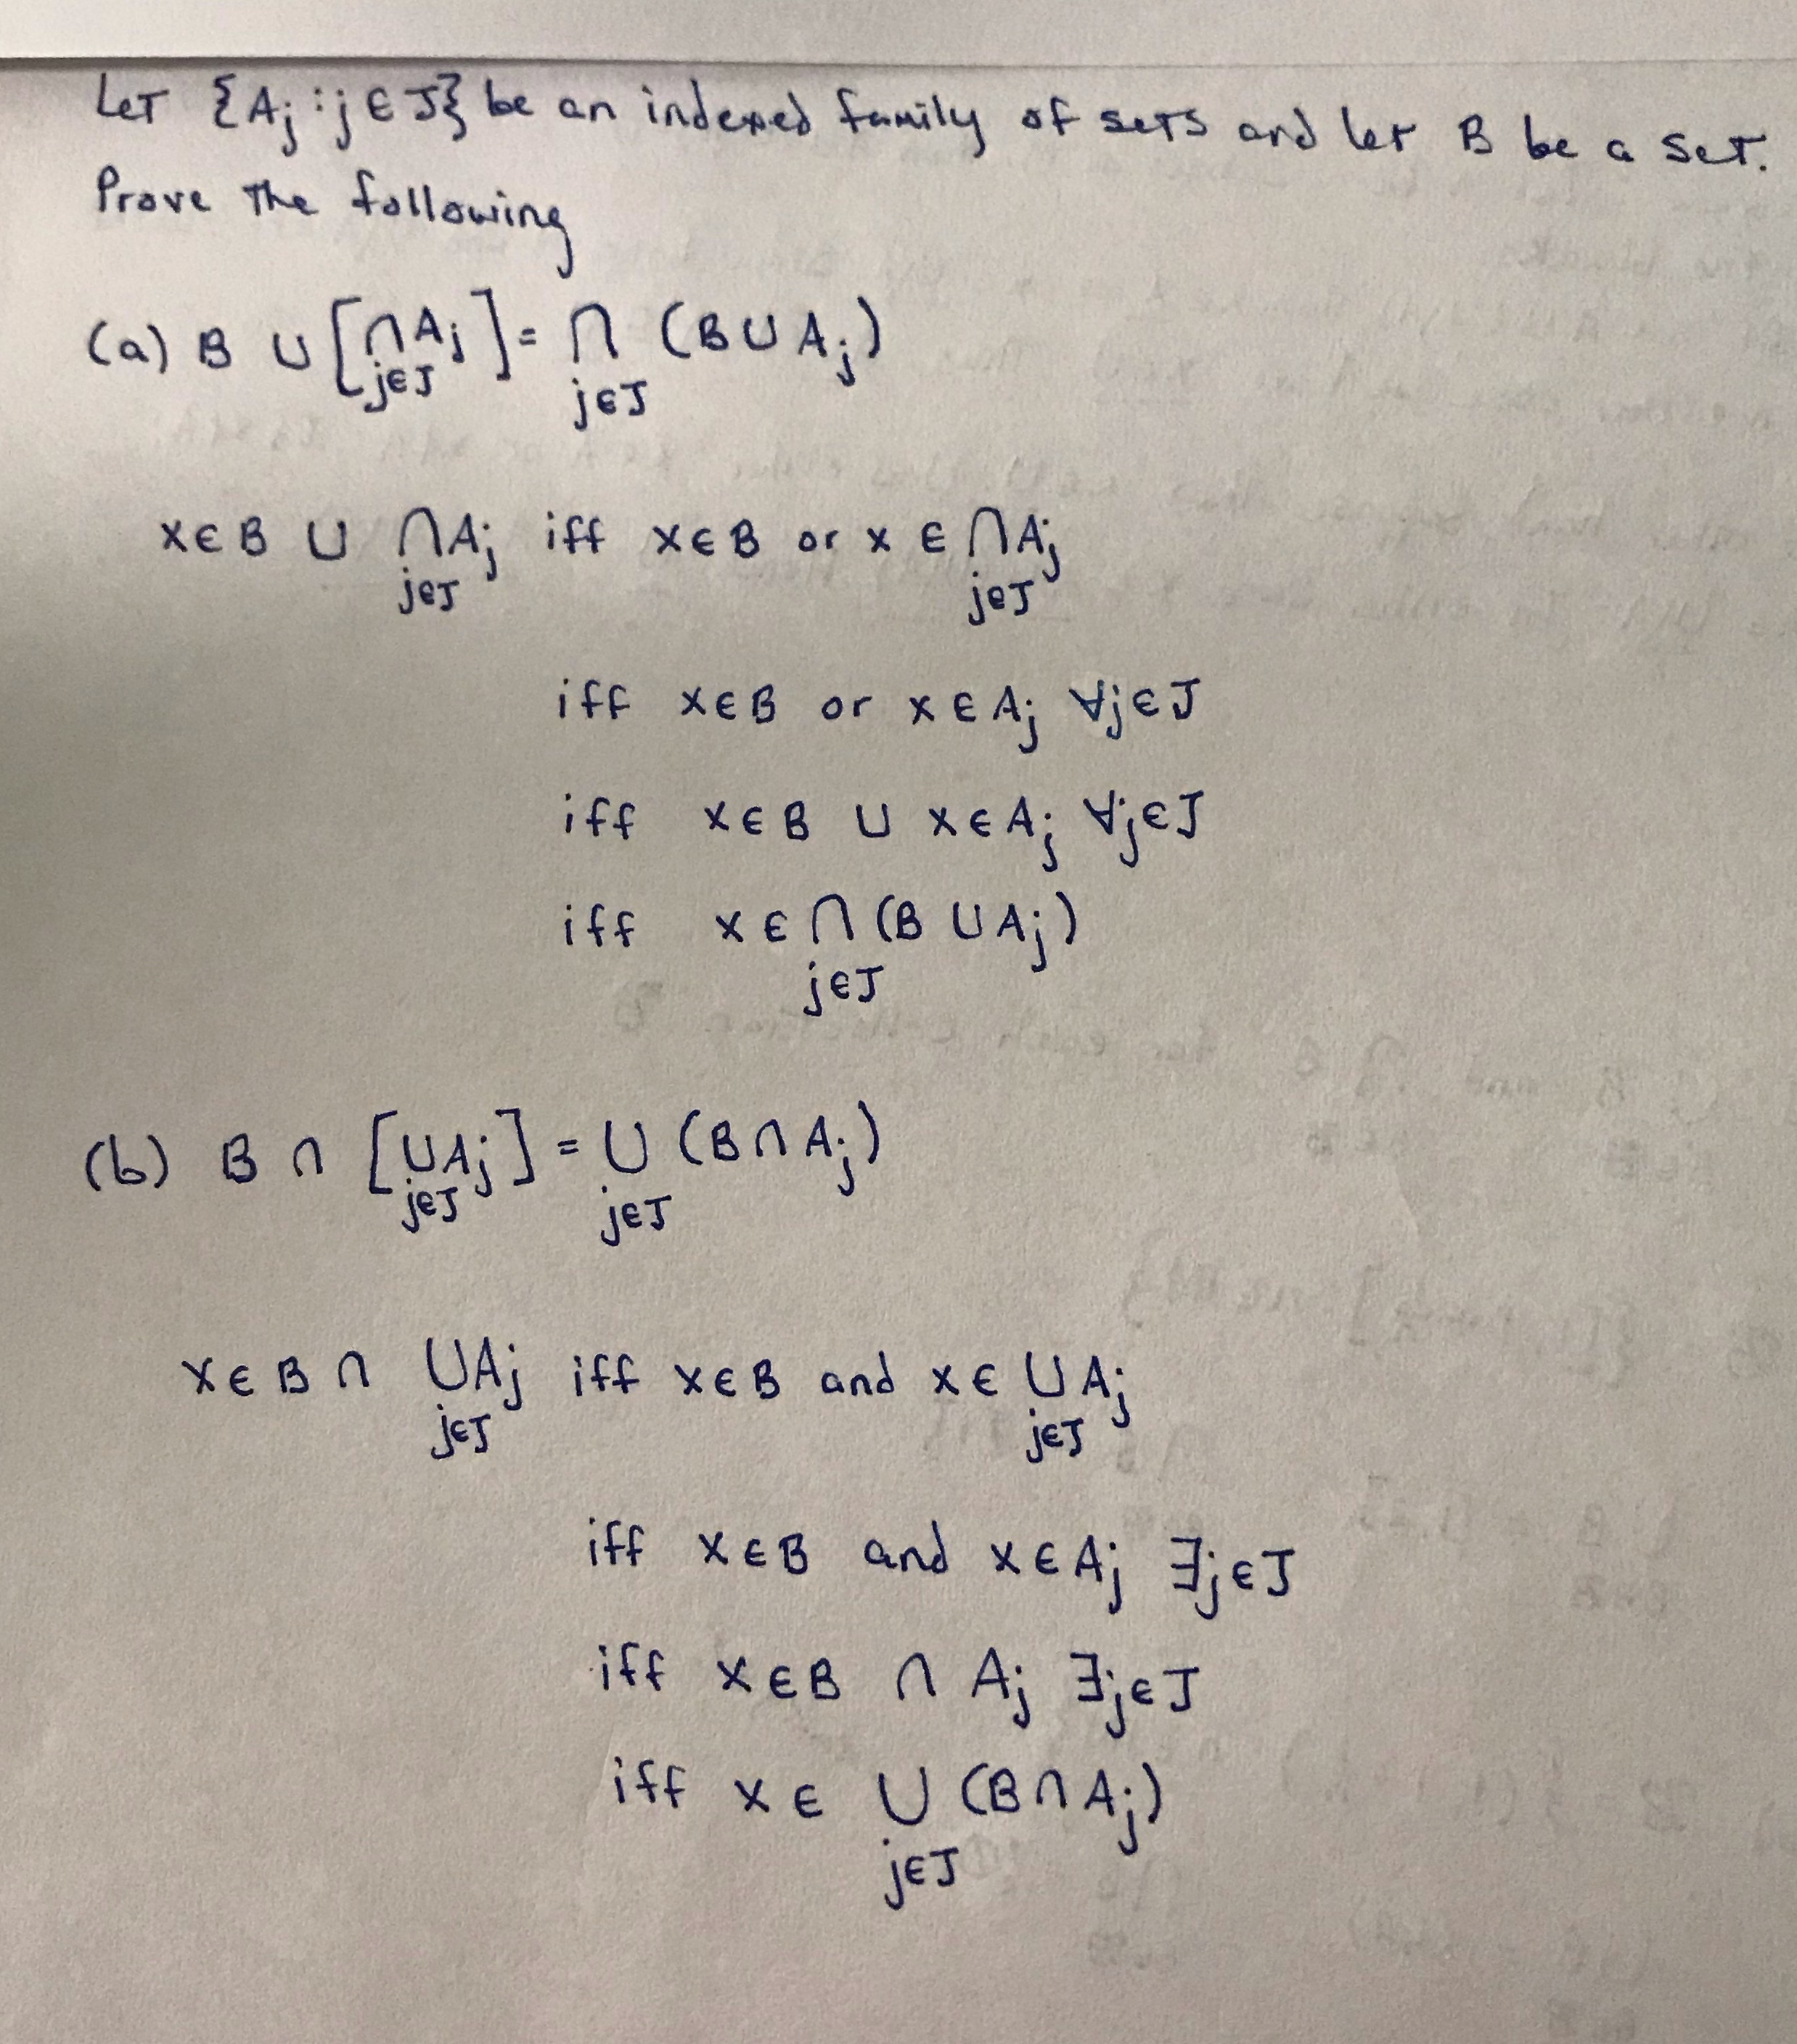 Let {Aj : j ∈ J} be an indexed family of sets and let B be a set.
Prove the following
(a) B ∪ [⋂ Aj] = ⋂ (B ∪ Aj)
j∈J j∈J
x∈B ∪ ⋂Aj iff x∈B or x ∈ ⋂Aj
j∈J j∈J
iff x∈B or x∈Aj ∀j∈J
iff x∈B ∪ x∈Aj ∀j∈J
iff x∈⋂(B ∪ Aj)
j∈J
(b) B ∩ [⋃Aj] = ⋃ (B∩Aj)
j∈J j∈J
x∈B ∩ ⋃Aj iff x∈B and x∈ ⋃Aj
j∈J j∈J
iff x∈B and x∈Aj ∃j∈J
iff x∈B ∩ Aj ∃j∈J
iff x∈ ⋃ (B∩Aj)
j∈J